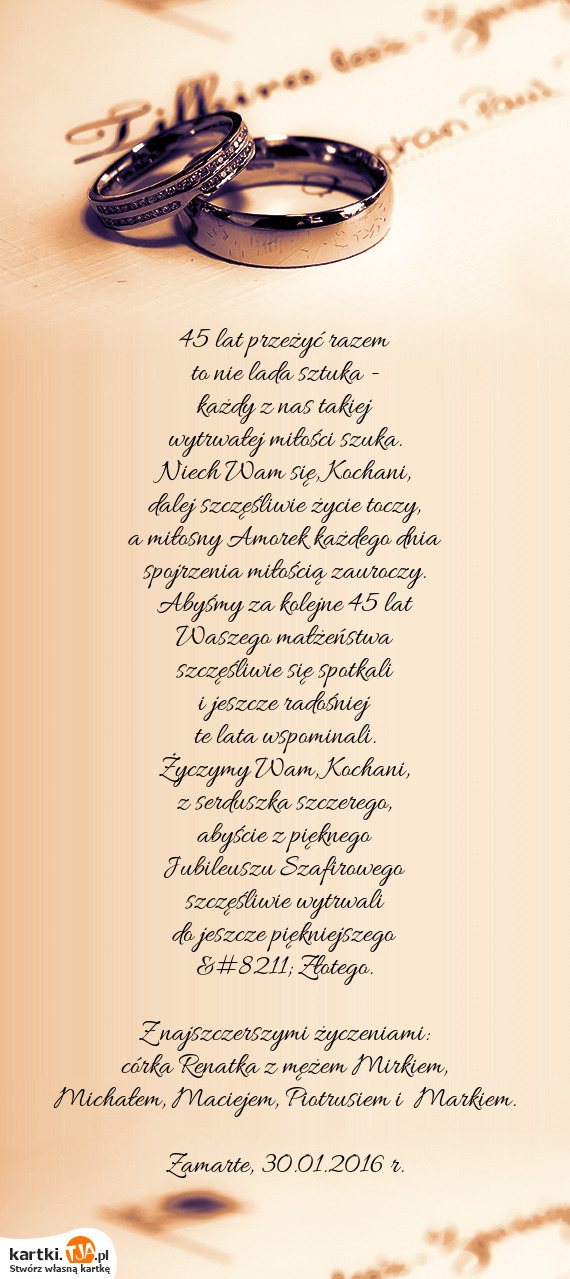 45 lat przeżyć razem
to nie lada sztuka -
każdy z nas takiej
wytrwałej miłości szuka.
Niech Wam się, Kochani,
dalej szczęśliwie życie toczy,
a miłosny Amorek każdego dnia
spojrzenia miłością zauroczy.
Abyśmy za kolejne 45 lat
Waszego małżeństwa
szczęśliwie się spotkali
i jeszcze radośniej
te lata wspominali.
Życzymy Wam, Kochani,
z serduszka szczerego,
abyście z pięknego
Jubileuszu Szafirowego
szczęśliwie wytrwali
do jeszcze piękniejszego
&#8211; Złotego.
Z najszczerszymi życzeniami:
córka Renatka z mężem Mirkiem,
Michałem, Maciejem, Piotrusiem i Markiem.
Zamarte, 30.01.2016 r.
kartki.TJA.pl
Stwórz własną kartkę